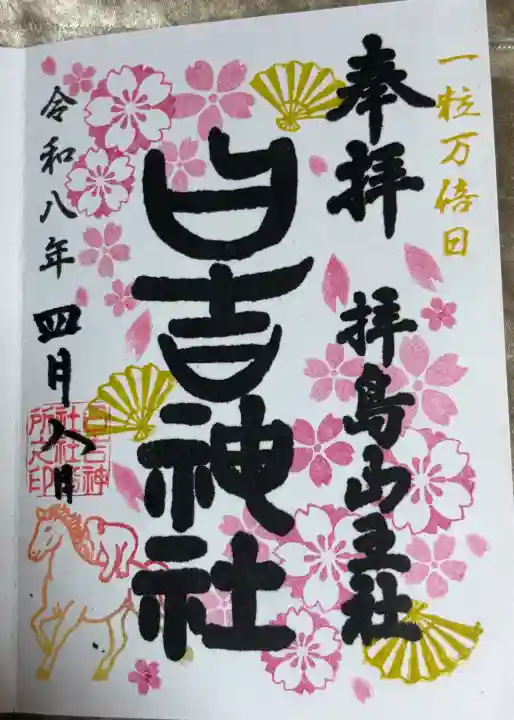 一粒万倍日
奉拝 拝島山王社
日吉神社
令和八年四月八日
日吉神
社社務
所之印